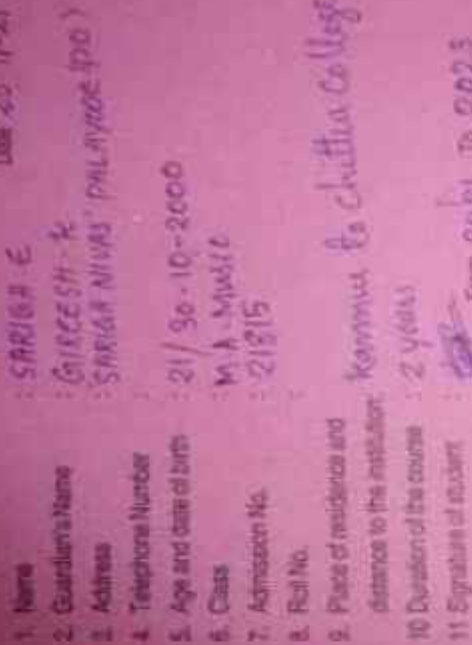 1. Name : SARIGA E
2. Guardian's Name : GIREESH. K
3. Address : SARIGA NIVAS' PALAYODE (PO)
4. Telephone Number
5. Age and date of birth : 21/ 30-10-2000
6. Class : M.A. MUSIC
7. Admission No. : 21815
8. Roll No. :
9. Place of residence and
distance to the institution : Kannur to chittur College
10 Duration of the course : 2 years
11 Signature of student :
to 2023